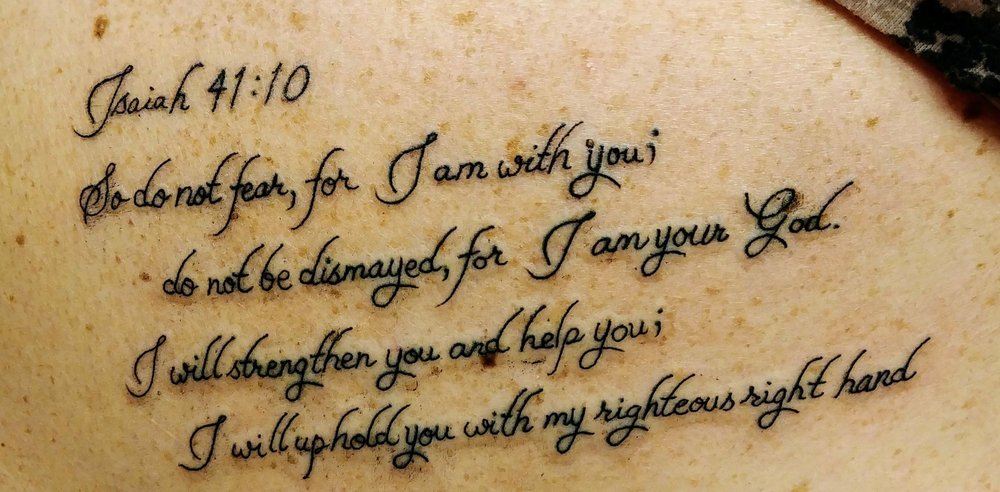 Isaiah 41:10
So do not fear, for I am with you;
do not be dismayed, for I am your God.
I will strengthen you and help you;
I will uphold you with my righteous right hand